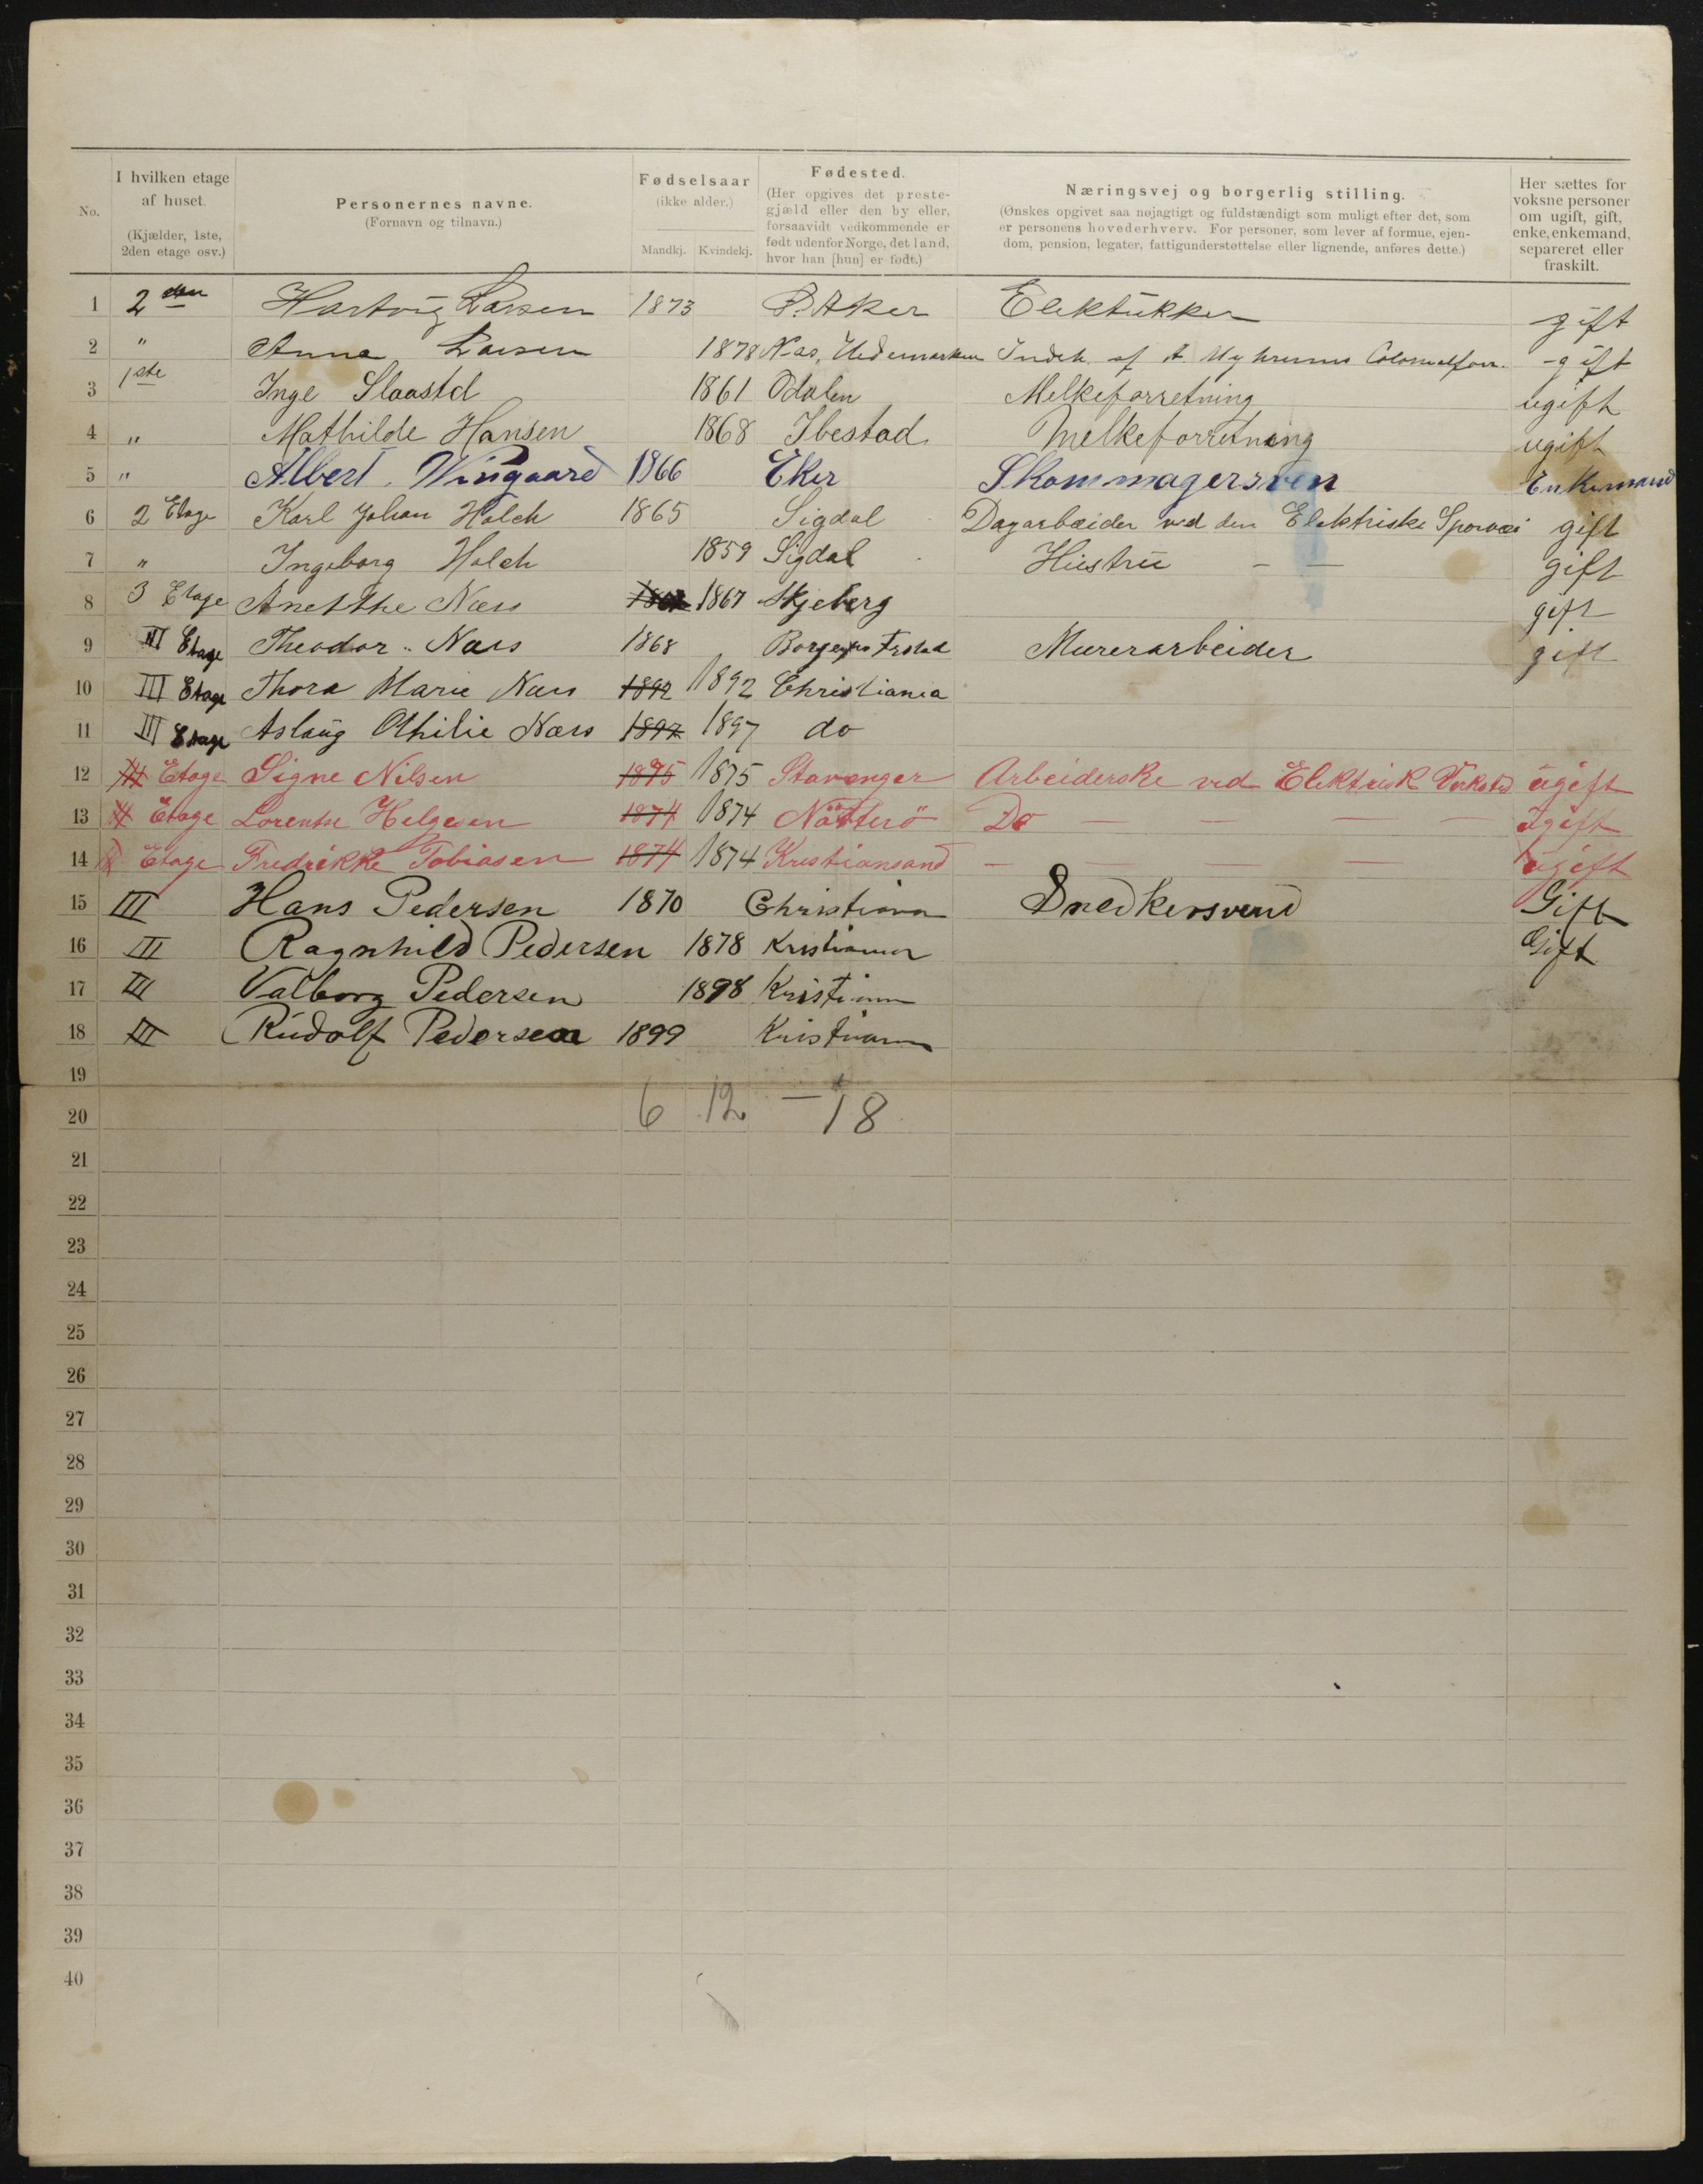 No.
I hvilken etage af huset.
(Kjælder, 1ste, 2den etage osv.)
Personernes navne.
(Fornavn og tilnavn.)
Fødselsaar
(ikke alder.)
Mandkj. Kvindekj.
Fødested.
(Her opgives det prestegjæld eller den by eller, forsaavidt vedkommende er født udenfor Norge, det land, hvor han [hun] er født.)
Næringsvej og borgerlig stilling.
(Ønskes opgivet saa nøjagtigt og fuldstændigt som muligt efter det, som er personens hovederhverv. For personer, som lever af formue, ejendom, pension, legater, fattigunderstøttelse eller lignende, anføres dette.)
Her sættes for voksne personer om ugift, gift, enke, enkemand, separeret eller fraskilt.
1 2den Hartvig Larsen 1873 Aker gift
2 " Anna Larsen 1878 Næs, Hedemarken Indeh. af A. Myhrums Colonialforr. gift
3 1ste Inge Slaastd 1861 Odalen Melkeforretning ugift
4 " Mathilde Hansen 1868 Ibestad Melkeforretning ugift
5 " Albert Wingaard 1866 Eker Skommagersven Enkemand
6 2 Etage Karl Johan Holch 1865 Sigdal Dagarbeider ved den Elektriske Sporvei gift
7 " Ingeborg Holch 1859 Sigdal Hustru — — gift
8 3 Etage Anetthe Næss 1867 Skjeberg gift
9 III Etage Theodor Næss 1868 Borge Murerarbeider gift
10 III Etage Thora Marie Næss 1892 1892 Christiania
11 III Etage Aslaug Othilie Næss 1897 1897 do
12 Etage Signe Nilsen 1875 1875 Stavanger Arbeiderske ved Elektrisk Verksted ugift
13 Etage Lorentse Helgesen 1874 1874 Nötterö Do — — — — ugift
14 Etage Fredrikke Tobiasen 1874 1874 Kristiansand — — — — ugift
15 III Hans Pedersen 1870 Christiania Snedkersvend Gift
16 III Ragnhild Pedersen 1878 Kristiania Gift
17 III Valborg Pedersen 1898 Kristiania
18 III Rudolf Pedersen 1899 Kristiania
19
20 6 12 — 18
21
22
23
24
25
26
27
28
29
30
31
32
33
34
35
36
37
38
39
40